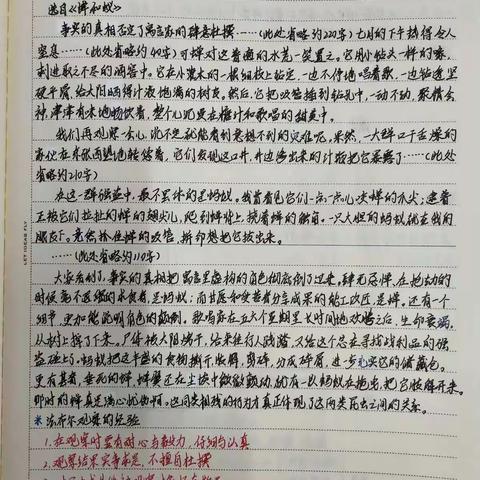 选自《蝉和蚁》
事实的真相否定了寓言家的肆意杜撰……(此处省略约220字)七月的下午热得令人
窒息……(此处省略约90字)可蝉对这普遍的水荒一笑置之。它用小钻头一样的喙,
刺进取之不尽的酒窖中。它在小灌木的一根细枝上站定,一边不停地唱着歌,一边钻透坚
硬平滑、给太阳晒得汁液饱满的树皮。然后,它把吸管插到钻孔中,一动不动,聚精会
神,津津有味地畅饮着,整个儿沉浸在糖汁和歌唱的甜美中。
我们再观察一会儿,说不定就能看到意想不到的灾难呢。果然,一大群口干舌燥的
家伙在东张西望地转悠着,它们发现这口井,井边渗出来的汁液把它暴露了……(此处
省略约210字)
在这一群强盗中,最不罢休的是蚂蚁。我曾看见它们一点一点儿咬蝉的爪尖;逮着
正被它们拉扯的蝉的翅尖儿,爬到蝉背上,挠着蝉的触角。一只大胆的蚂蚁就在我的
眼皮下,竟然抓住蝉的吸管,拼命想把它拔出来。
……(此处省略约110字)
大家看到了,事实的真相把寓言里虚构的角色彻底倒了过来,肆无忌惮、在抢劫的
时候毫不退缩的求食者,是蚂蚁;而甘愿和受苦者分享成果的能工巧匠是蝉。还有一个
细节,更加能说明角色的颠倒。歌唱家在五六个星期里长时间地欢唱之后,生命衰竭,
从树上摔了下来。尸体被太阳晒干,给来往行人践踏,又给这个总在寻找战利品的强
盗碰上了。蚂蚁把这丰盛的食物撕开、肢解、剪碎、分成碎屑,进一步充实它的储藏仓。
更有甚者,垂死的蝉,蝉翼还在尘埃中微微颤动,就有一队蚂蚁在拖出,把它肢解开来。
那时的蝉真是满心忧伤啊。这同类相残的行为才真正体现了这两类昆虫之间的关系。
*法布尔观察的经验
1.在观察时要有耐心与毅力,仔细与认真
2.观察结果实事求是,不擅自杜撰
LET IDEAS FLY